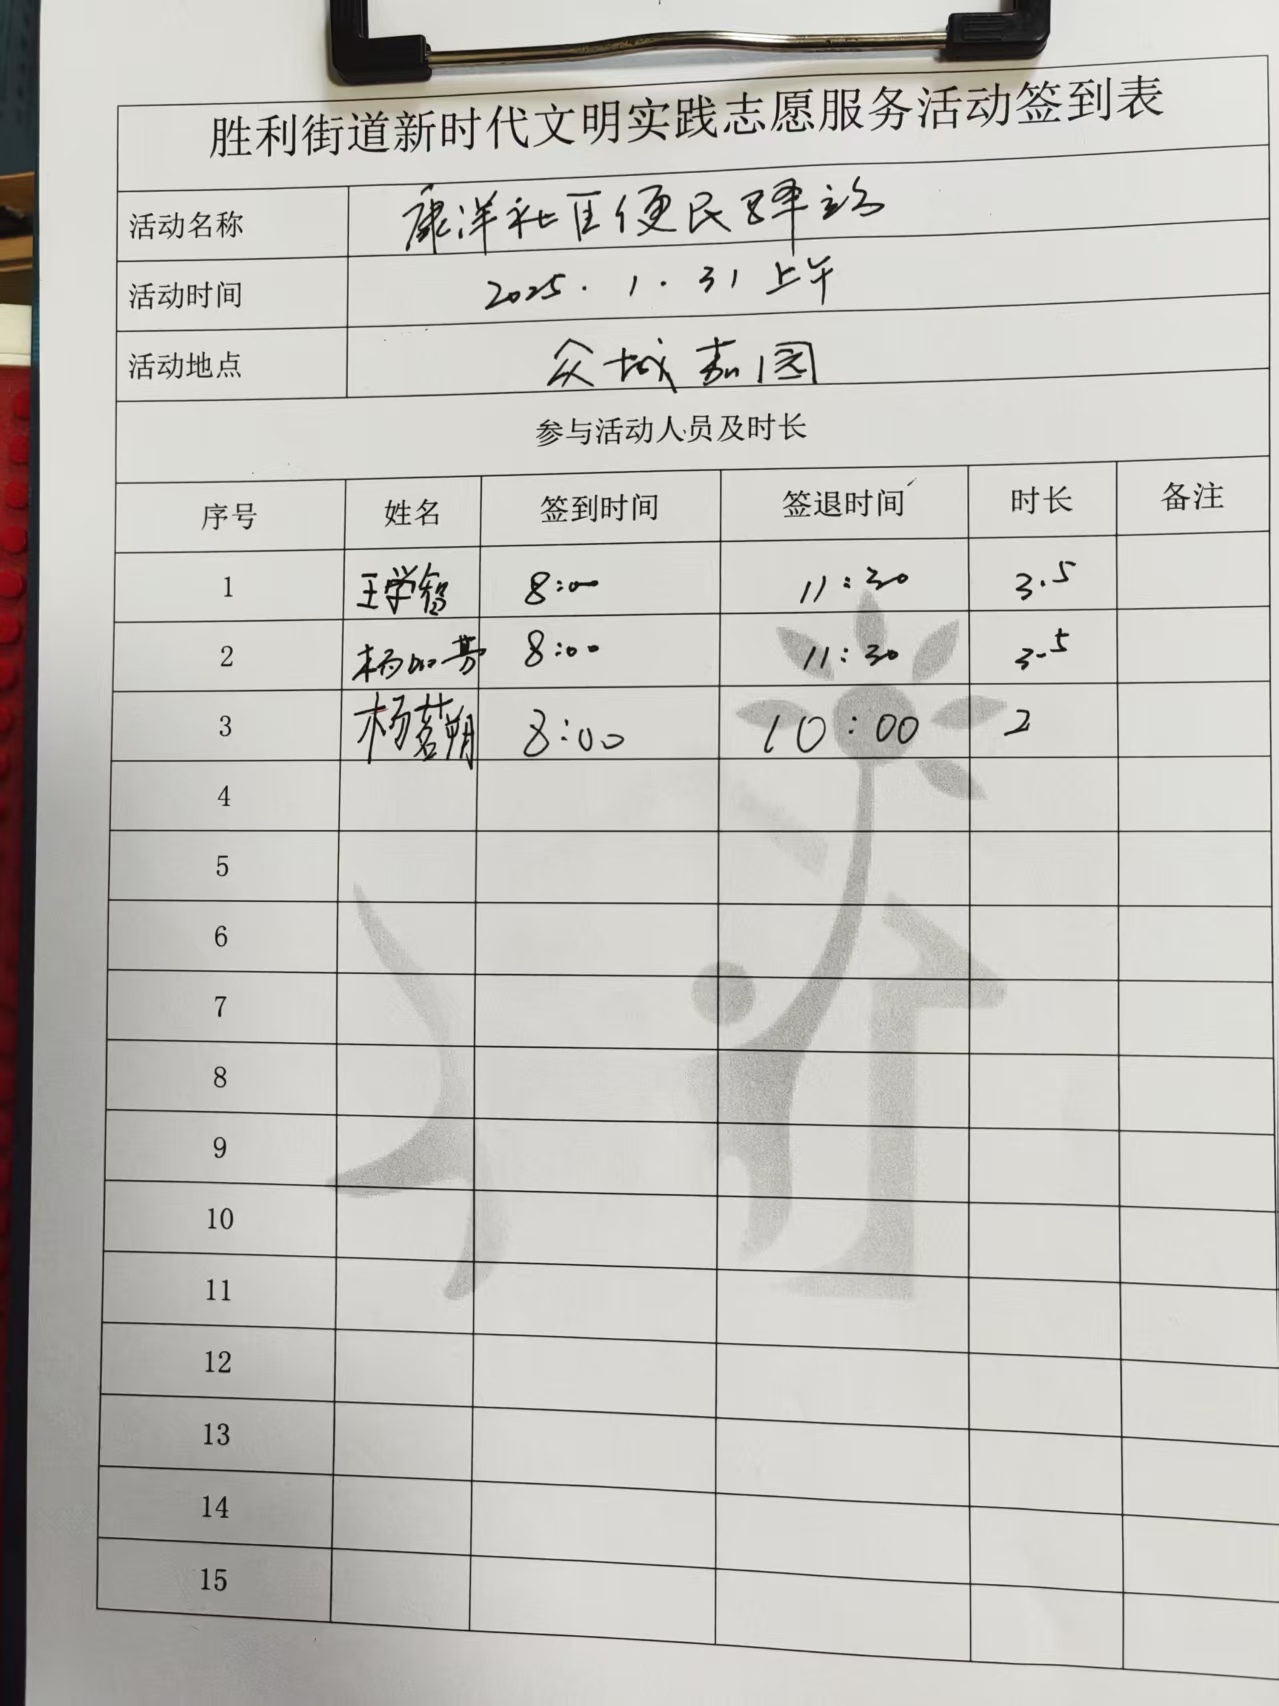 胜利街道新时代文明实践志愿服务活动签到表
活动名称 康洋社区便民驿站
活动时间 2025.1.31上午
活动地点 众城嘉园
参与活动人员及时长
序号 姓名 签到时间 签退时间 时长 备注
1 王学铭 8:00 11:30 3.5
2 8:00 11:30 3.5
3 杨茗朔 8:00 10:00 2
4
5
6
7
8
9
10
11
12
13
14
15